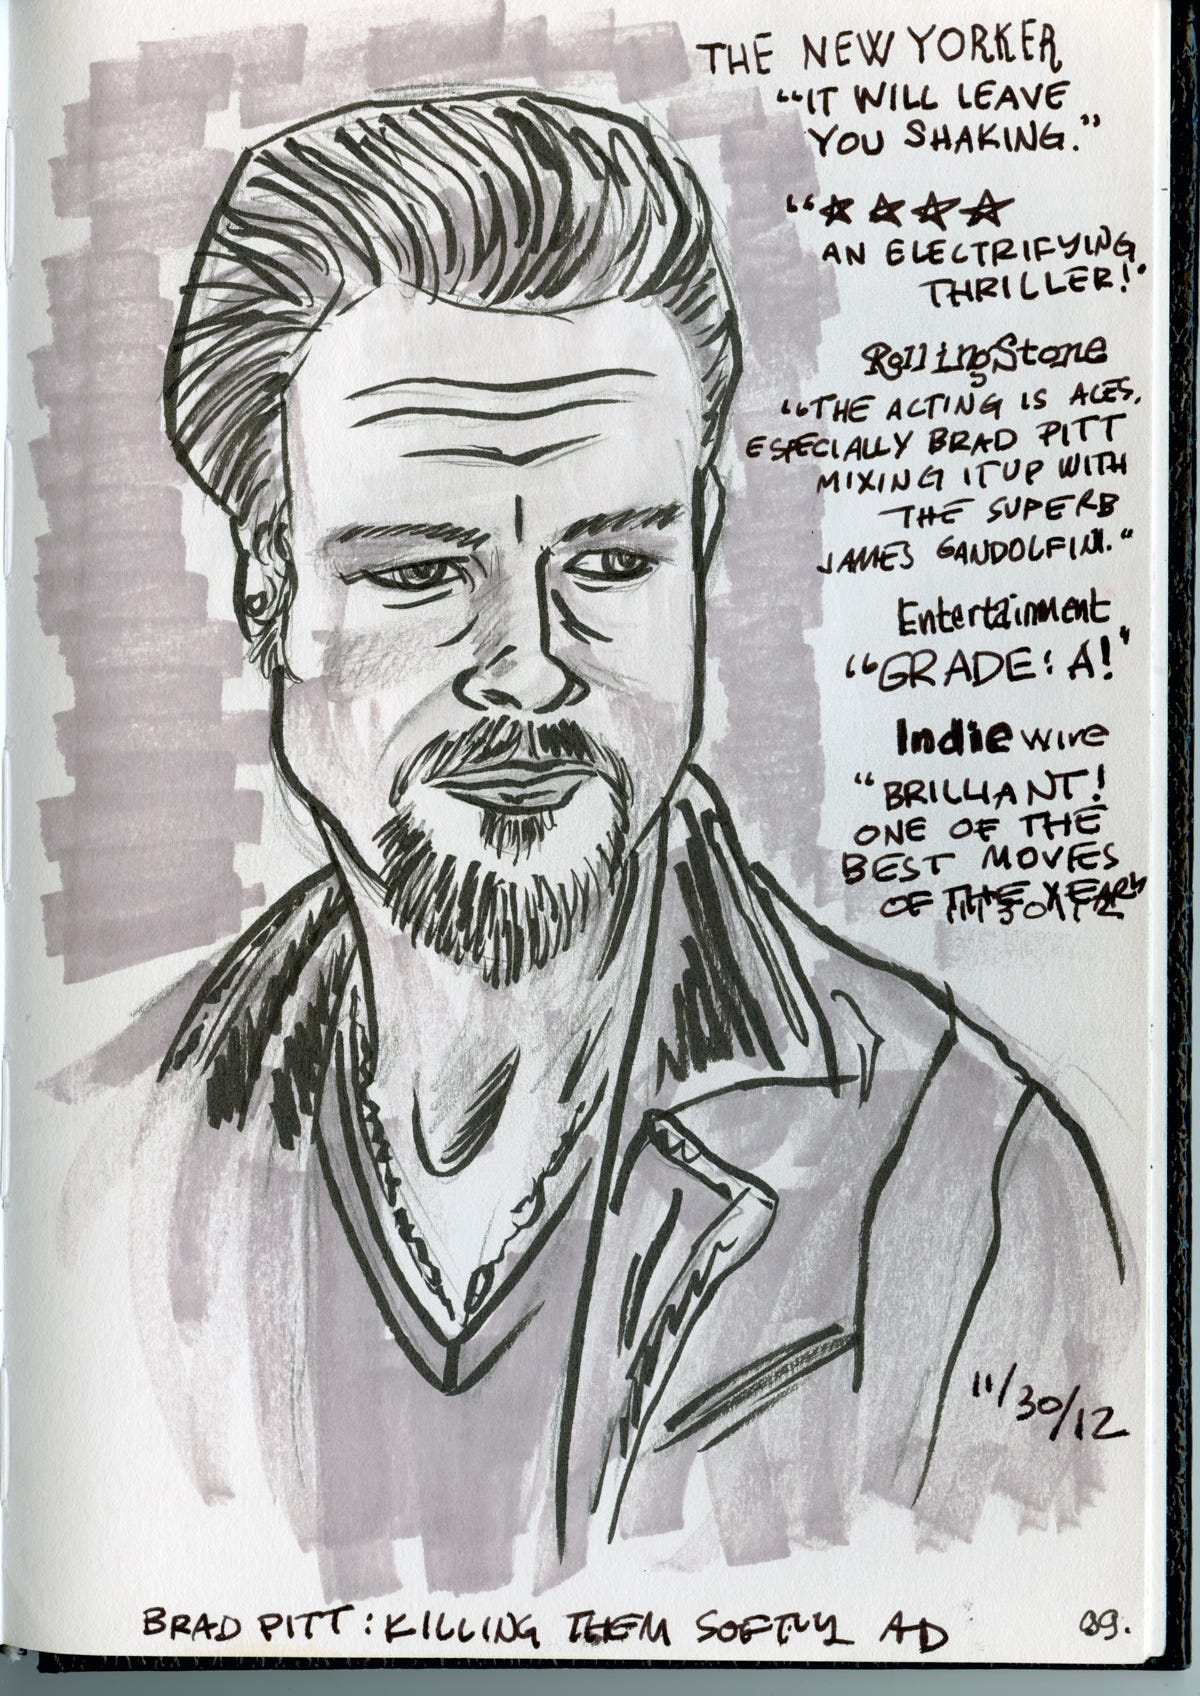 THE NEW YORKER
"IT WILL LEAVE
YOU SHAKING."
"★ ★ ★ ★
AN ELECTRIFYING
THRILLER!"
RollingStone
"THE ACTING IS ACES,
ESPECIALLY BRAD PITT
MIXING IT UP WITH
THE SUPERB
JAMES GANDOLFINI."
Entertainment
"GRADE: A!"
Indiewire
"BRILLIANT!
ONE OF THE
BEST MOVIES
OF THE YEAR"
11/30/12
BRAD PITT: KILLING THEM SOFTLY AD
89.